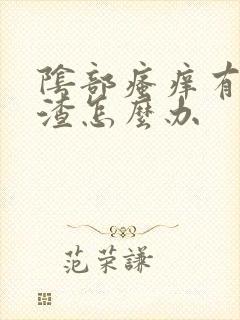 陰部瘙痒有
渣怎麼办
范荣謙